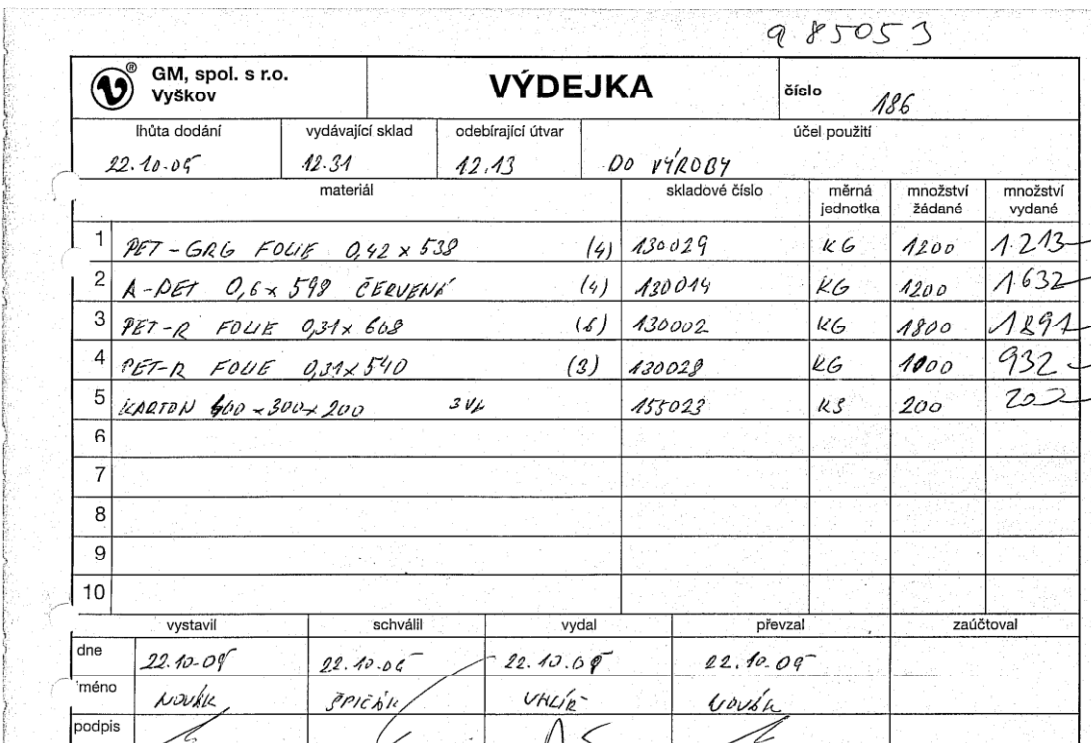 985053
GM, spol. s r.o.
Vyškov
VÝDEJKA
číslo 186
lhůta dodání vydávající sklad odebírající útvar účel použití
22.10.05 12.31 12.13 DO VÝROBY
materiál skladové číslo měrná jednotka množství žádané množství vydané
1 PET-GRG FOLIE 0,42 x 538 (4) 130029 KG 1200 1.213
2 A-PET 0,6 x 598 ČERVENÁ (4) 130014 KG 1200 1.632
3 PET-R FOLIE 0,31 x 608 (6) 130002 KG 1800 1891
4 PET-R FOLIE 0,31 x 540 (3) 130028 KG 1000 932
5 KARTON 400 x 300 x 200 3VL 155023 KS 200 200
6
7
8
9
10
vystavil schválil vydal převzal zaúčtoval
dne 22.10.05 22.10.05 22.10.05 22.10.05
jméno NOVÁK ŠPIČÁK UHLÍŘ NOVÁK
podpis